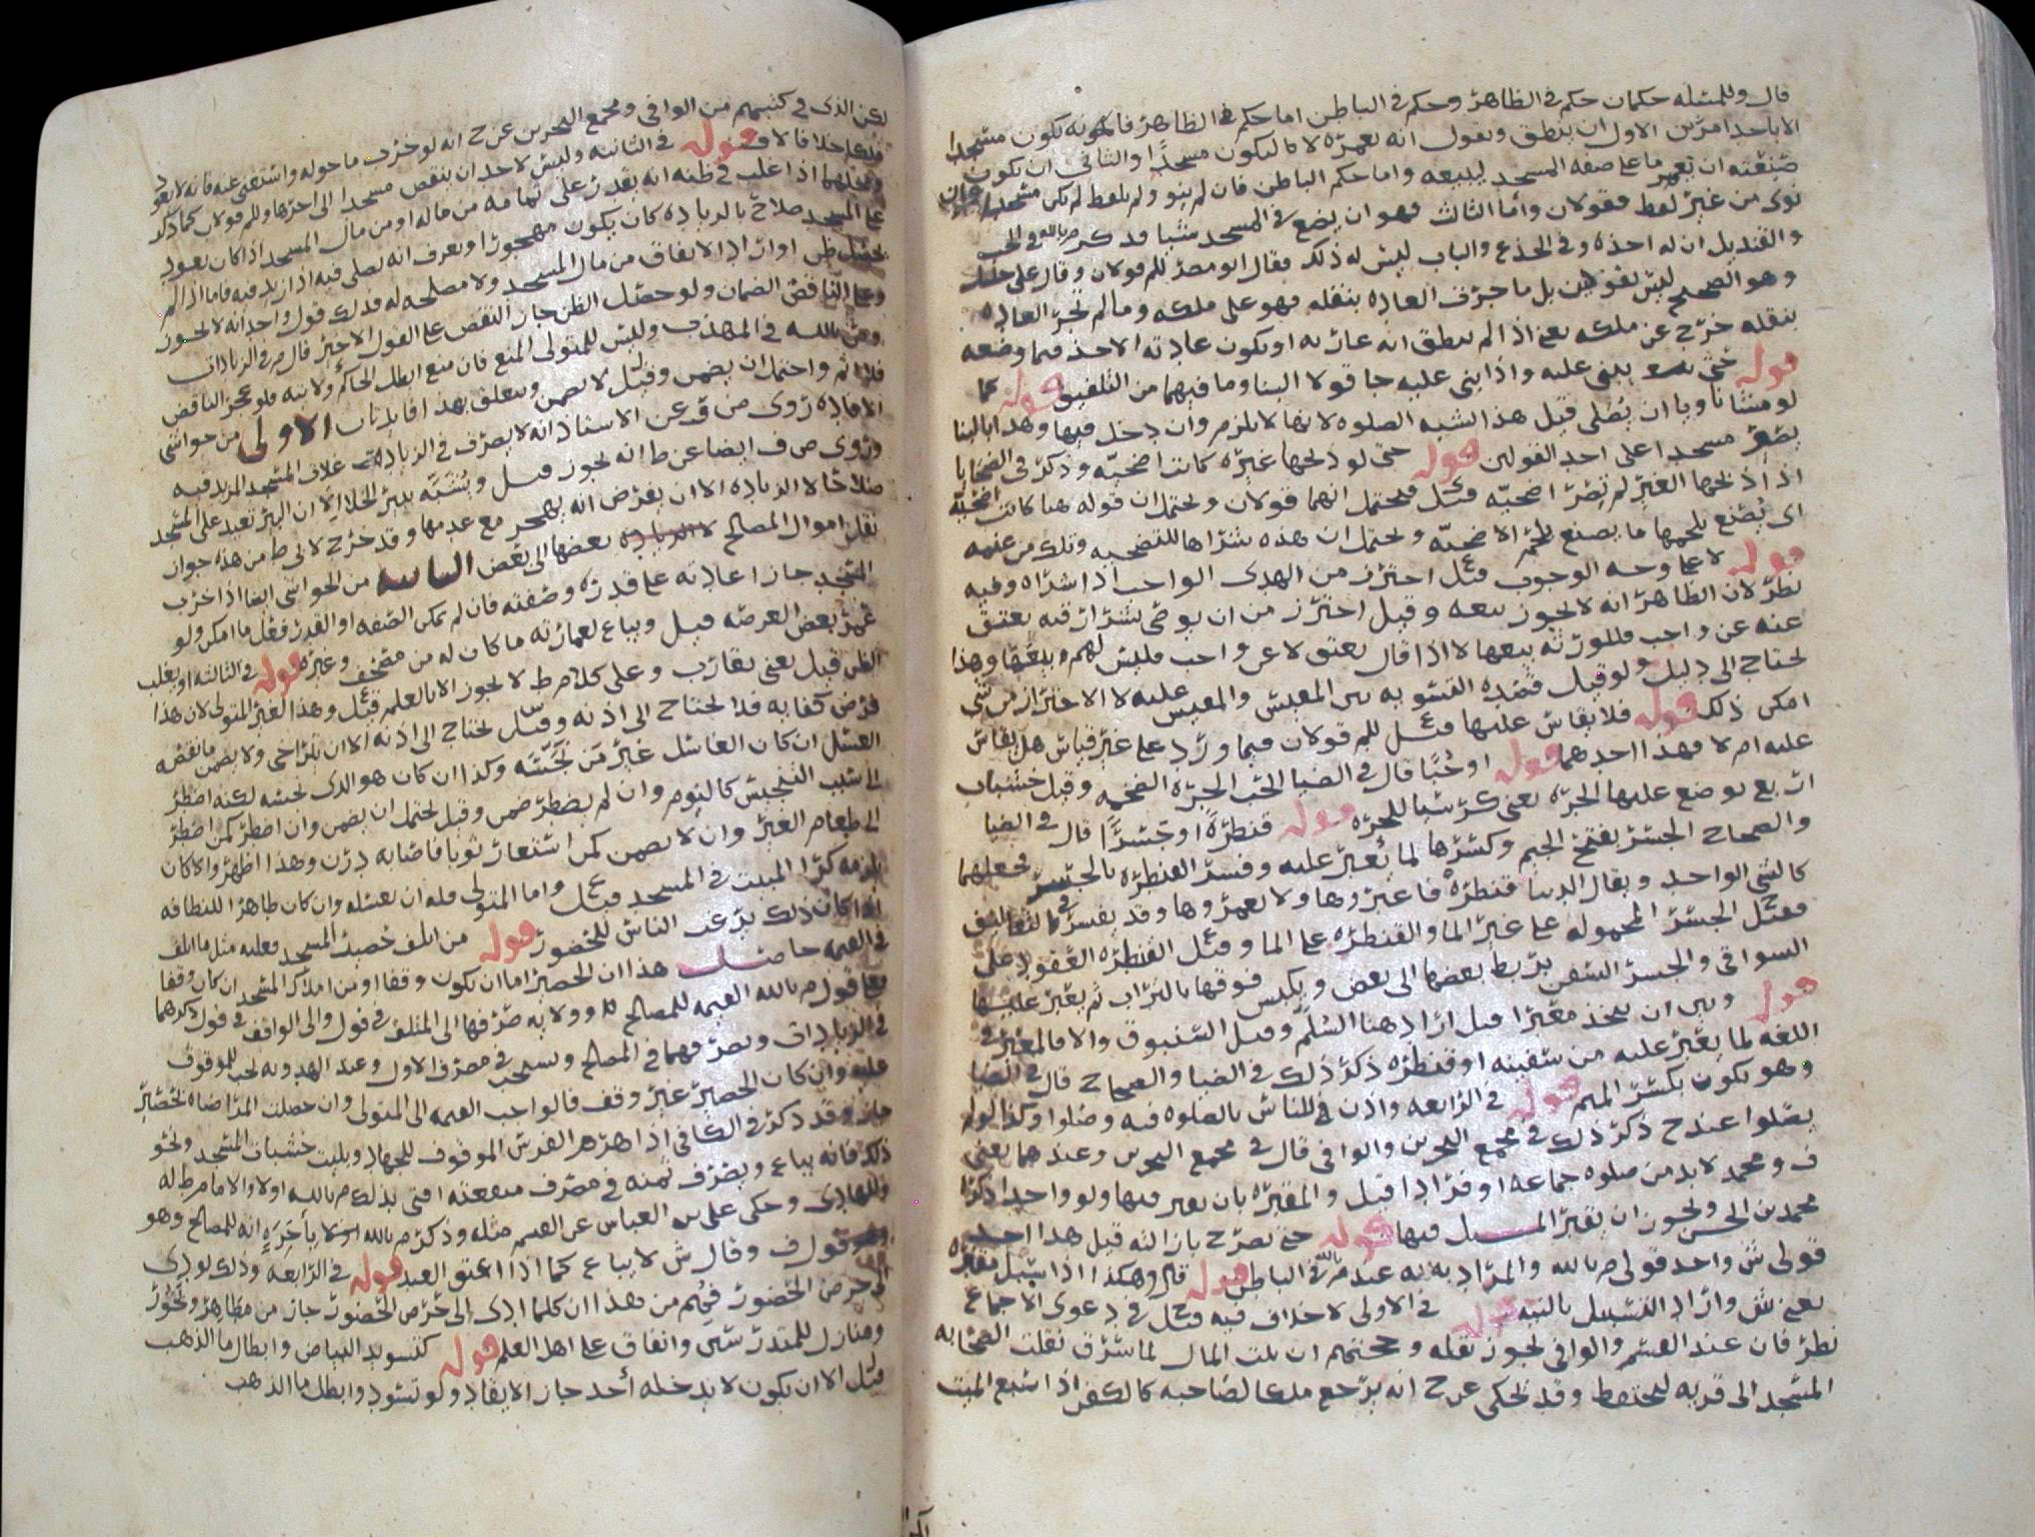 قال وللمسئله حكمان حكم في الظاهر وحكم في الباطن اما حكم في الظاهر فانه يكون مسجدا
الا باحد امرين الاول ان ينطق ويقول انه يعمره لا ما ليكون مسجدًا والثاني ان يكون
صنعته ان يعمرها على صفه المسجد لبيعه واما حكم الباطن فان لم ينو ولم يلفظ لم يكن مسجدا وان
نوى من غير لفظ فقولان واما الثالث فهو ان يضع في المسجد شيا قد ذكر م بالله في الجب
والقنديل ان له اخذه وفي الجذع والباب ليس له ذلك فقال ابو مضر للم قولان وقال علي خليل
وهو الصحيح ليس بقولين بل ما جرت العاده بنقله فهو على ملكه وما لم تجر العاده
بنقله خرج عن ملكه يعني اذا لم ينطق انه عاريه او يكون عادته الاخذ فيما وضعه
قوله حتى يبنى عليه واذا بنى عليه جا قولا البنا وما فيهما من التلفيق قوله كما
لو منشانا ويا ان يصلى قيل هذا الشبه الصلوه لانها لا تلزم وان دخل فيها وهذا بالبنا
يصير مسجدا على احد القولين قوله حتى لو ذبحها غيره كانت اضحيه وذكر في الضحايا
اذا ذبحها الغير لم تصر اضحيه فيحتمل انهما قولان ويحتمل ان قوله هنا كانت اضحيه
اي يصنع بلحمها ما يصنع بلحم الاضحيه ويحتمل ان هذه شراها للتضحيه وتلك من غنمه
قوله لا على وجه الوجوب قيل احترز من الهدي الواجب اذا شراه وفيه
نظر لان الظاهر انه لا يجوز بيعه وقيل احترز من ان يوصي بشرا رقبه يعتق
عنه عن واجب فللورثه بيعها لا اذا قال يعتق لا عن واجب فليس لهم بيعها وهذا
يحتاج الى دليل ولو قيل قصده التسويه بين المقيس والمقيس عليه لا الاحتراز من شي
امكن ذلك قوله فلا يقاس عليها قيل للم قولان فيما ورد على غير قياس هل يقاس
عليه ام لا فهذا احدهما قوله او حُبًّا قال في الضيا الحب الجره الضخمه وقيل خشبات
اربع توضع عليها الجره يعني كرسيا للجره قوله قنطرةً او جسرًا قال في الضيا
والصحاح الجسر بفتح الجيم وكسرها لما يُعبر عليه وفسر القنطره بالجسر فجعلهما
كالشي الواحد ويقال الدنيا قنطره فاعبروها ولا تعمروها وقد يفسر
فقيل الجسر المحموله على غير الما والقنطره على الما وقيل القنطره العقود على
السواقي والجسر السفن يربط بعضها الى بعض ويكبس فوقها بالتراب ثم يعبر عليها
قوله وبين ان يتخذ معبرا قيل اراد هنا السُلَّم وقيل السنبوق والا فالمعبر في
اللغه لما يعبر عليه من سفينه او قنطره ذكر ذلك في الضيا والصحاح قال في الضيا
وهو يكون بكسر الميم قوله في الرابعه واذن للناس بالصلوه فيه وصلوا وكذا لو لم
يصلوا عند ح ذكر ذلك في مجمع البحرين والوافي قال في مجمع البحرين وعندهما يعني
ف ومحمد لا بد من صلوه جماعه او فرادا قيل والمقبره بان يقبر فيها ولو واحد ذكره
محمد بن الحسن ويجوز ان يقبر المسبل فيها قوله حتى يصرح بازالته قيل هذا احد
قولي ش واحد قولي م بالله والمراد به عند م بالله في الباطن قوله قال وهكذا اذا سبل مقبره
يعني ش واراد التسبيل بالنيه قوله في الاولى لا خلاف فيه قيل في دعوى الاجماع
نظر فان عند القسم والوافي يجوز نقله وحجتهم ان بيت المال لما سرق نقلت الصحابه
المسجد الى قربه ليحتفظ وقد يحكى عن ح انه يرجع ملكا لصاحبه كالكفن اذا اشبع الميت
لكن الذي في كتبهم من الوافي ومجمع البحرين عن ح انه لو خرب ما حوله واستغني عنه فانه لا يعود
ملكا خلافا لا ف قوله في الثانيه وليس لاحد ان ينقض مسجدا الى اخرها وللم قولان كما ذكر
ومحلهما اذا غلب في ظنه انه يقدر على تمامه من ماله او من مال المسجد اذا كان يعود
على المسجد صلاح بالزياده كان يكون مهجورا ويعرف انه يصلى فيه اذا زيد فيه فاما اذا لم
يحصل ظن او اراد الانفاق من مال المسجد ولا مصلحه له فذلك قول واحد انه لا يجوز
وعلى الناقض الضمان ولو حصل الظن جاز النقض على القول الاخير قال م في الزيادات
وعن م بالله في المهذب وليس للمتولي المنع فان منع ابطل الحاكم ولايته فلو عجز الناقض
فلا اثم واحتمل ان يضمن وقيل لا يضمن ويتعلق بهذا فايدتان الاولى من حواشي
الافاده روى ص ف عن الاستاذ انه لا يصرف في الزيادات غلات المسجد المزيد فيه
وروى ص ف ايضا عن ط انه يجوز قيل ويُشبَّه ببئر الخلا الا ان البئر تعيد على المسجد
صلاحا لا الزياده الا ان يفرض انه يهجر مع عدمها وقد خرج لابي ط من هذه جواز
نقل اموال المصالح بعضها الى بعض الثانيه من الحواشي ايضا اذا خرب
المسجد جاز اعادته على قدره وصفته فان لم يمكن الصفه او القدر فعل ما امكن ولو
عمر بعض العرصه قيل ويباع لعمارته ما كان له من مصحف وغيره قوله في الثالثه او يغلب
الظن قيل يعني يقارب وعلى كلام ط لا يجوز الا بالعلم قيل وهذا لغير المتولي لان هذا
فرض كفايه فلا يحتاج الى اذنه وقيل يحتاج الى اذنه الا ان يتراخى ولا يضمن ما نقصه
الغسل ان كان الغاسل غير مَن نَجَّسَه وكذا ان كان هو الذي نجسه لكنه اضطر
الى سبب التنجيس كالنوم وان لم يضطر ضمن وقيل يحتمل ان يضمن وان اضطر كمن اضطر
الى طعام الغير وان لا يضمن كمن استعار ثوبا فاصابه درن وهذا اظهر والا كان
يلزمه كرا المبيت في المسجد قيل واما المتولي فله ان يغسله وان كان طاهرا للنظافه
اذا كان ذلك يرغب الناس للحضور قوله من اتلف حصير المسجد فعليه مثل ما اتلف
في القيمه حاصل هذا ان الحصير اما ان يكون وقفا او من املاك المسجد ان كان وقفا
فعلى قول م بالله القيمه للمصالح وولايه صرفها الى المتلف في قول والى الواقف في قول ذكرهما
في الزيادات ويصرفهما في المصالح ويستحب في مصرف الاول وعند الهدويه يجب للموقوف
عليه وان كان الحصير غير وقف فالواجب القيمه الى المتولي وان حصلت المراضاه بحصير
جاز وقد ذكر في الكافي اذا هرم الفرس الموقوف للجهاد وبليت خشبات المسجد ونحو
ذلك فانه يباع ويصرف ثمنه في مصرف منفعته افتى بذلك م بالله اولا والامام ط له
والهادي وحكى علي بن العباس عن القسم مثله وذكر م بالله اولا باَخِرَةٍ انه للمصالح وهو
قول ف وقال ش لا يباع كما اذا اعتق العبد قوله في الرابعه وذلك يودي
الى حرص الحضور فُهِم من هذا ان كلما ادى الى حرص الحضور جاز من مظاهر ونحو
ومنازل للمتدرسين وانفاق على اهل العلم قوله كتسويد البياض وابطال ما الذهب
قيل الا ان يكون لا يدخله أحد جاز الايقاد ولو تسود وابطل ما الذهب